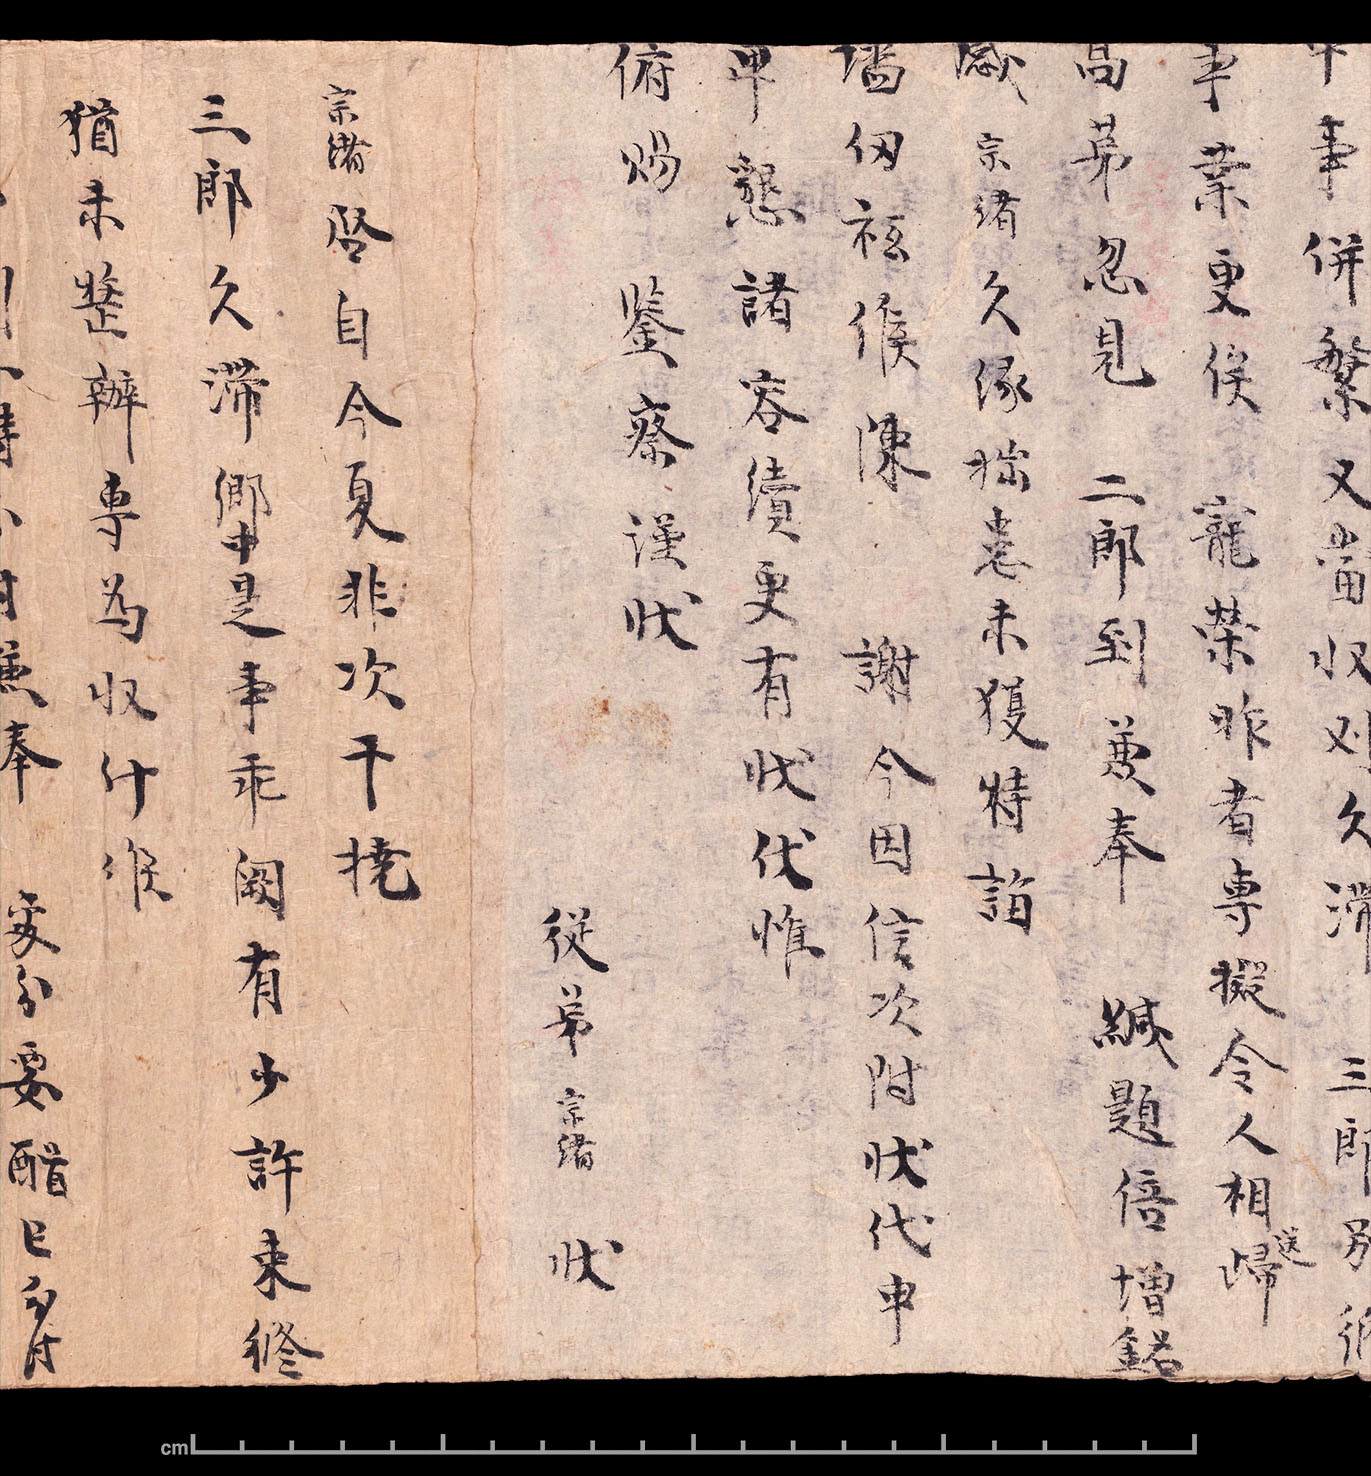 事併繁又當收刈久滯　三郎別
事業更俟　寵榮昨者專擬令人相送歸
髙弟忽見　二郎到兼奉　緘題倍增
感宗緒久緣拙恙未獲特詣
墻仭祗候陳　謝今因信次附狀代申
卑懇諸容續更有狀伏惟
俯賜　鑒察謹狀
從弟宗緒　狀
宗緒啓自今夏非次干撓
三郎久滯鄉中是事乖闕有少許來
猶未整辦專為收什候
奉　處分要醋已分付